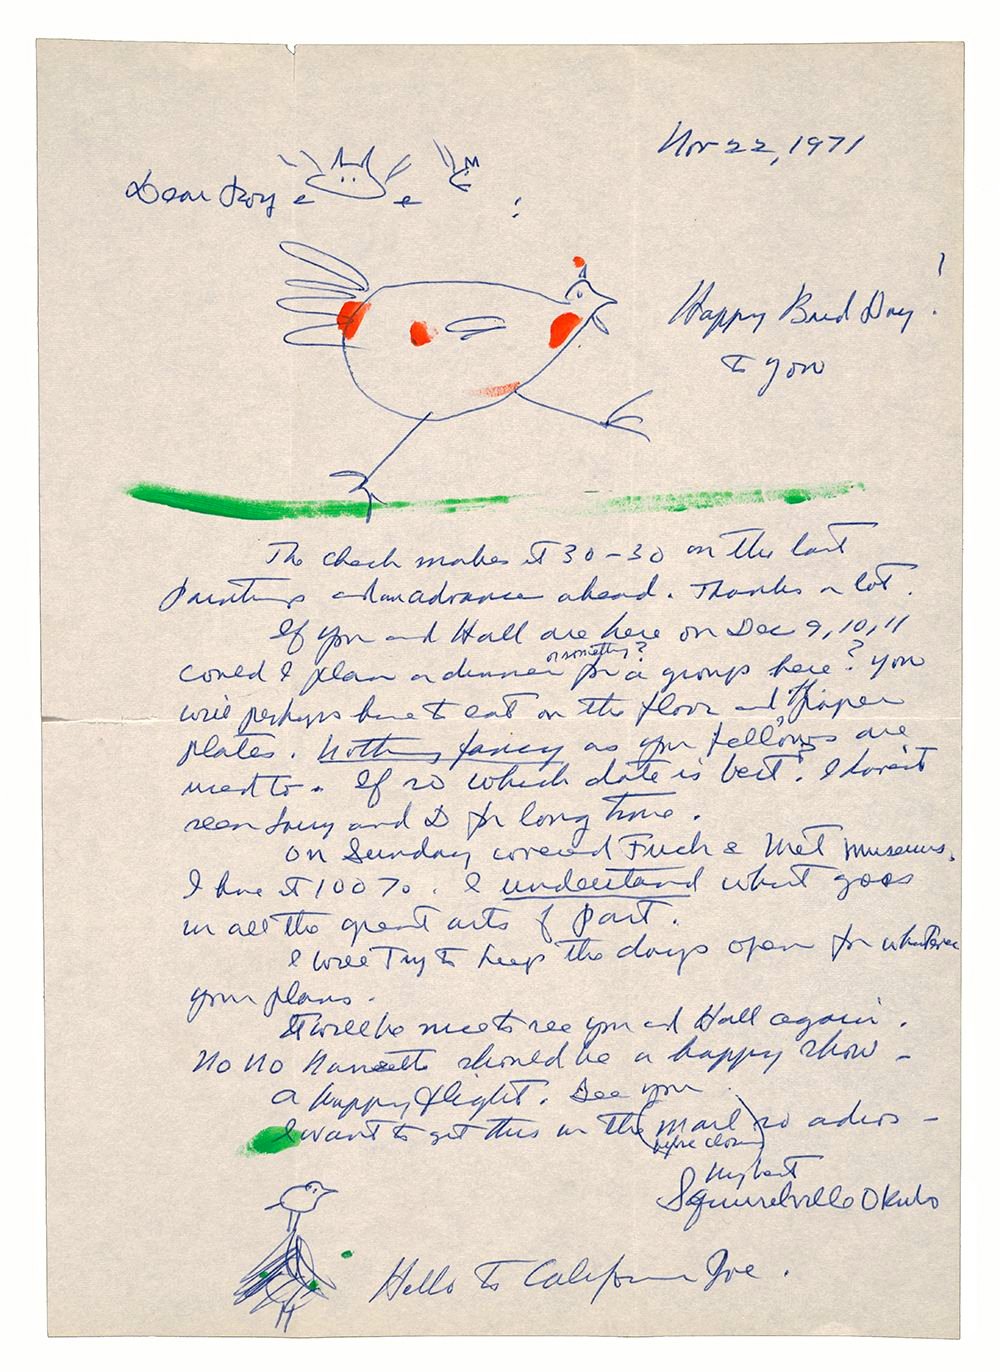 Nov 22, 1971
Dear Roy
Happy Bird Day!
to you
The check makes it 30-30 on the last
painting and an advance ahead. Thanks a lot.
If you and Hall are here on Dec 9, 10, 11
could I plan a dinner or something? for a group here? You
will perhaps have to eat on the floor and paper
plates. Nothing fancy as you fellows are
used to. If so which date is best? I haven't
seen and D for long time.
On Sunday covered Frick & Met museums.
I love it 100%. I understand what goes
in all the great arts of past.
I will try to keep the days open for whatever
your plans.
It will be nice to see you and Hall again.
No No Nanette should be a happy show -
a happy flight. See you
I want to get this in the mail (before closing) so adios -
My best
Squirrelville Okubo
Hello to California Joe.